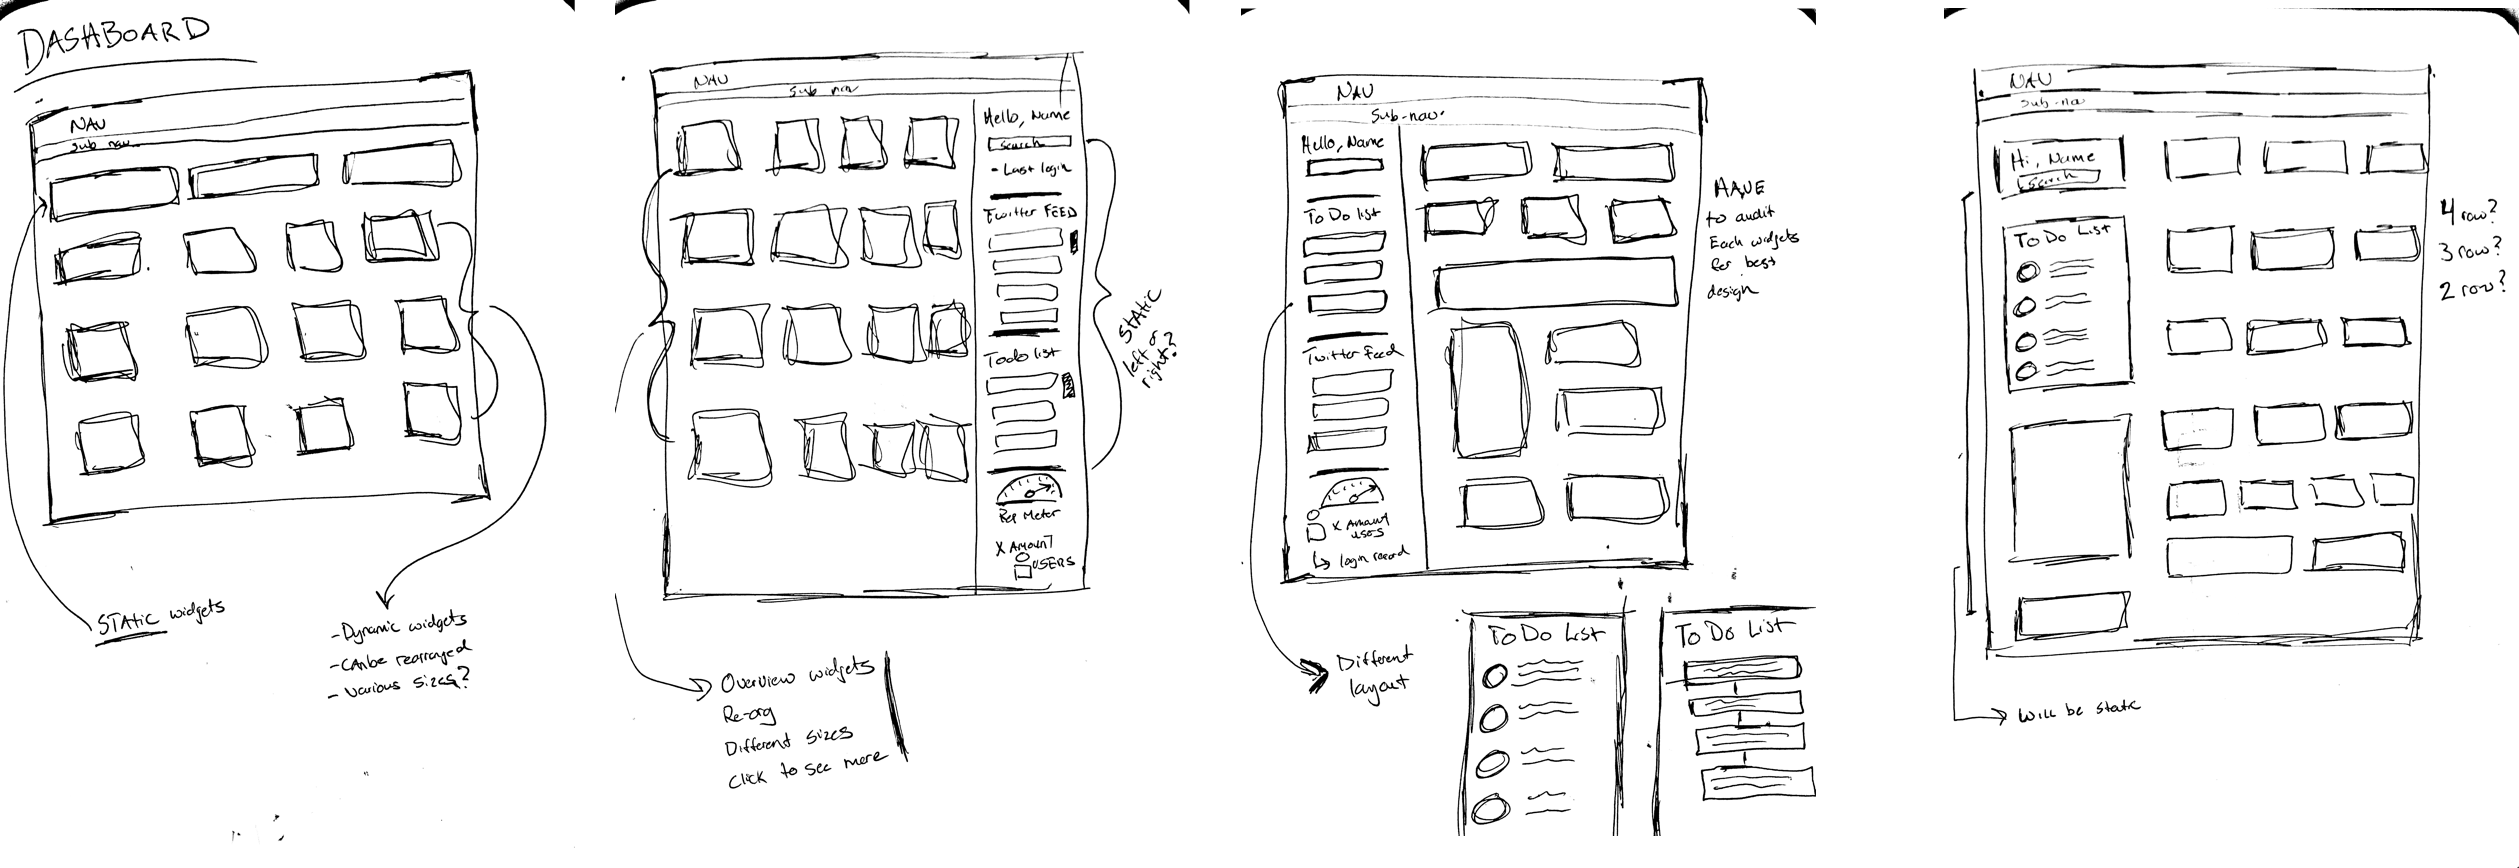 DASHBOARD
NAV
sub nav
STATIC widgets
- Dynamic widgets
- CAn be rearranged
- Various sizes?
NAV
sub nav
Hello, Name
Search
- Last login
Twitter FEED
Todo list
Rep Meter
X AMOUNT
USERS
STATIC
left or
right?
Overview widgets
Re-org
Different sizes
Click to see more
NAV
Sub-nav
Hello, Name
To Do list
Twitter Feed
X Amount
users
login record
HAVE
to audit
Each widgets
for best
design
Different
layout
To Do List
To Do List
NAV
Sub-nav
Hi, Name
Search
To Do List
4 row?
3 row?
2 row?
Will be static